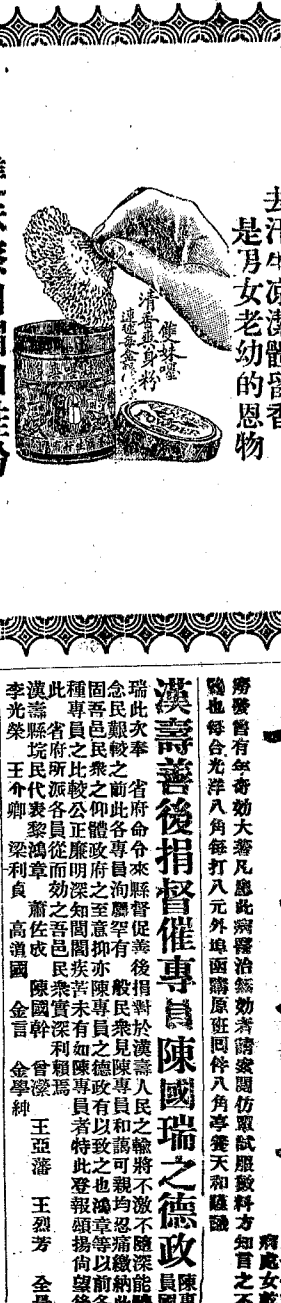 去汗生凉潔體留香
是男女老幼的恩物
雙妹嘜
清香爽身粉
POWDER
癆發舊有年奇効大著凡患此病醫治無効者請來閱仿單試服數料方知言之不
驗也每台光洋八角每打八元外埠函購原班回件八角亭養天和謹識
漢壽善後捐督催專員陳國瑞之德政
瑞此次奉　省府命令來縣督促善後捐對於漢壽人民之輸將不激不隨深能
念民艱較之前此各專員洵屬罕有一般民衆見陳專員和藹可親均忍痛繳納
固吾邑民衆之仰體政府之至意抑亦陳專員之德政有以致之也鴻章等以前各
種專員之比較公正廉明深知閭閻疾苦未有如陳專員者特此登報頌揚尙望後
此　省府所派各員從而效之吾邑民衆實深利賴焉
漢壽縣垸民代表黎鴻章　蕭佐成　陳國幹　曾濚　王亞藩　王烈芳
李光榮　王介卿　梁利貞　高道國　金言　金學紳